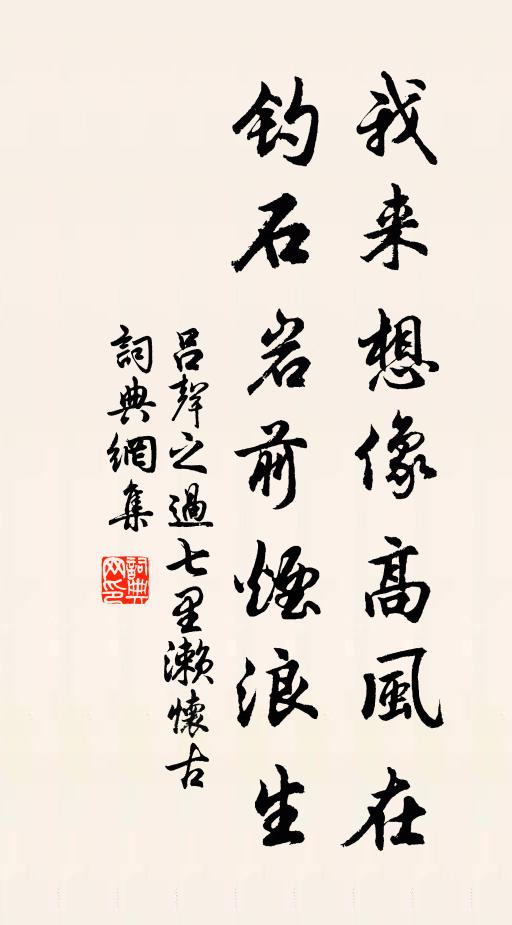 我来想像高風在
钓石岩前煙浪生
吕聲之過七里瀨懷古
詞典網集
詞典网印